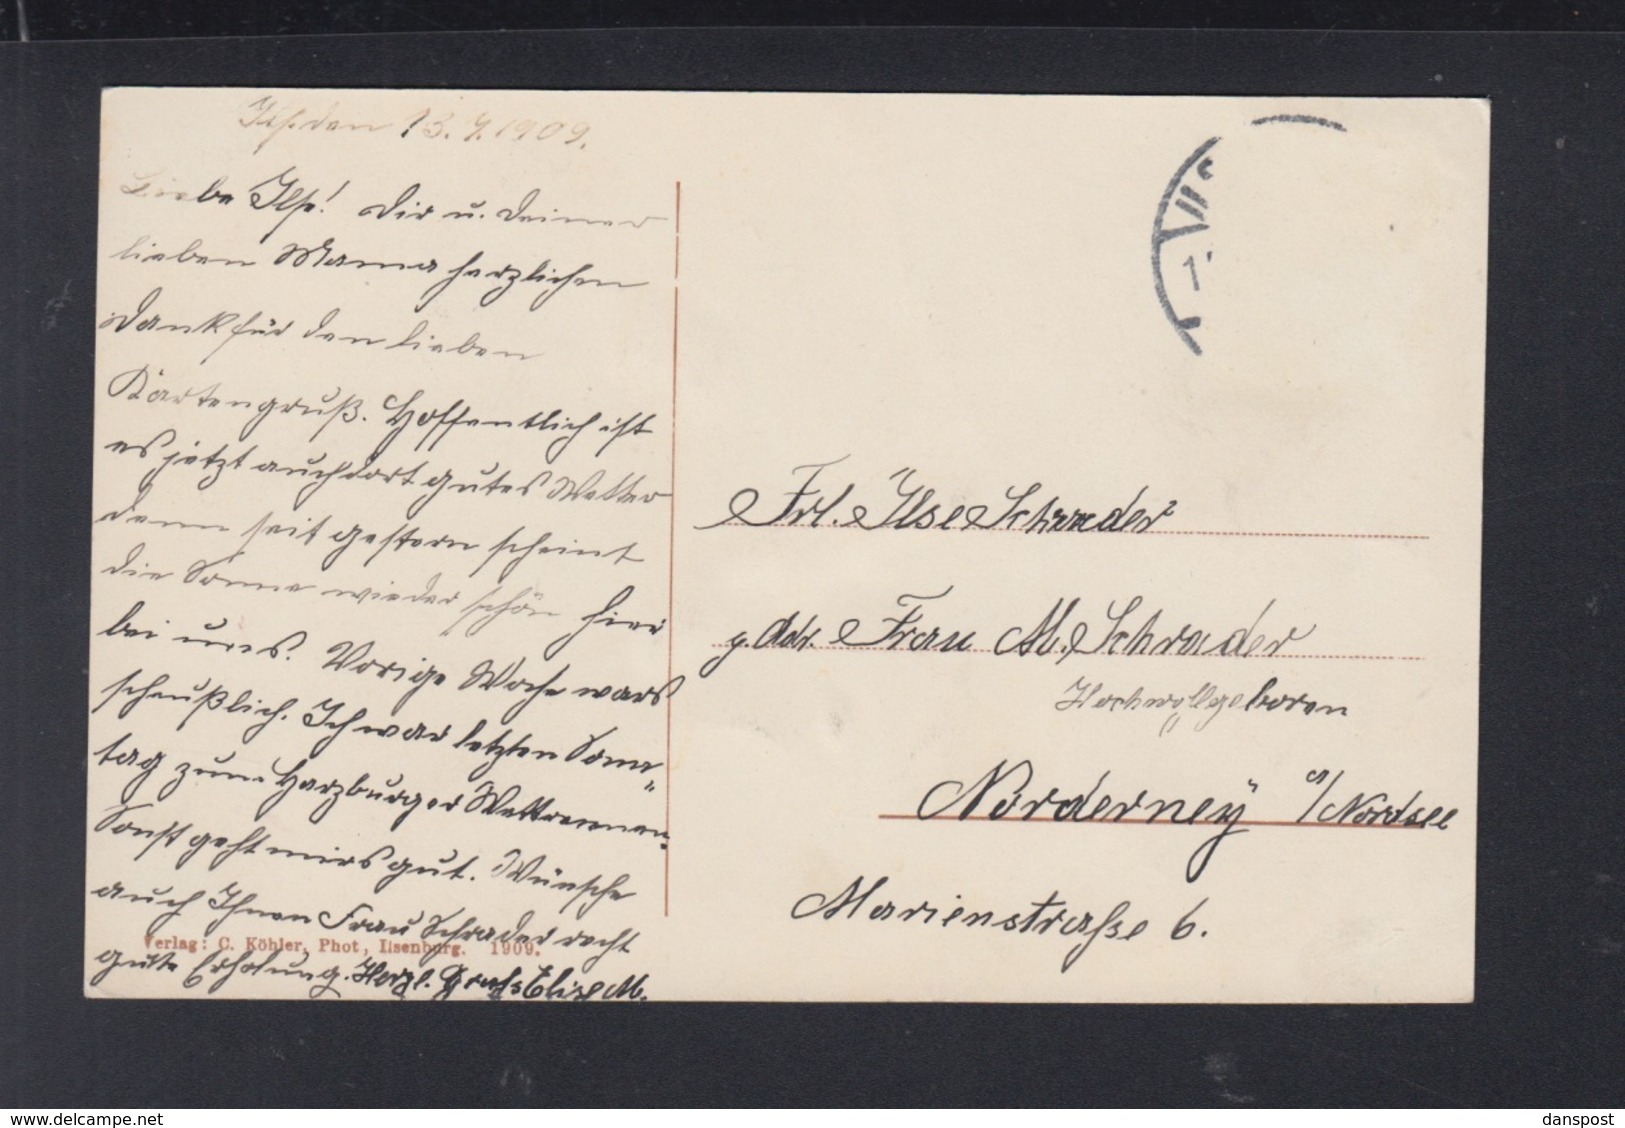 Ilsb. den 13.7.1909.
Liebe Ilse! Dir u. Deiner
lieben Mama herzlichen
Dank für den lieben
Kartengruß. Hoffentlich ist
es jetzt auch dort gutes Wetter
denn seit gestern scheint
die Sonne wieder schön hier
bei uns. Vorige Woche wars
scheußlich. Ich war letzten Sonn-
tag zum Harzburger Wettrennen.
Sonst geht mirs gut. Wünsche
auch Ihnen Frau Schrader recht
gute Erholung. Herzl. Gruß Elise M.
Verlag: C. Köhler, Phot., Ilsenburg. 1909.
Frl. Ilse Schrader
p. Adr. Frau M. Schrader
Hochwollgeboren
Norderney a/Nordsee
Marienstraße 6.
delcampe.net
danspost